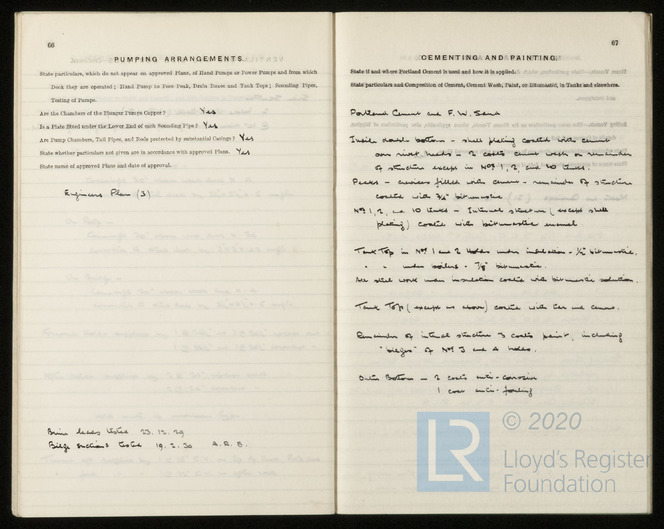 66
PUMPING ARRANGEMENTS.
State particulars, which do not appear on approved Plans, of Hand Pumps or Power Pumps and from which
Deck they are operated; Hand Pump to Fore Peak, Drain Boxes and Tank Tops; Sounding Pipes,
Testing of Pumps.
Are the Chambers of the Plunger Pumps Copper? Yes
Is a Plate fitted under the Lower End of each Sounding Pipe? Yes
Are Pump Chambers, Tail Pipes, and Roses protected by substantial Casings? Yes
State whether particulars not given are in accordance with approved Plans. Yes
State name of approved Plans and date of approval.
Engineers Plan (3)
Brine leads tested 23.12.29
Bilge suctions tested 19.2.30 A.R.B.
67
CEMENTING AND PAINTING.
State if and where Portland Cement is used and how it is applied.
State particulars and Composition of Cement, Cement Wash, Paint, or Bitumastic, in Tanks and elsewhere.
Portland Cement and F. W. Sand
Inside double bottom - shell plating coated with cement
over rivet heads - 2 coats cement wash on remainder
of structure except in Nos 1, 2, and 10 tanks.
Peaks - crevices filled with cement - remainder of structure
coated with bitumastic
Nos 1, 2, and 10 tanks - Internal structure (except shell
plating) coated with bitumastic enamel
Tank Top in Nos 1 and 2 Holds under insulation - 1/2" bitumastic.
" " under boilers - 7/8" bitumastic.
All steel work under insulation coated with bitumastic solution.
Tank Top (except as above) coated with tar and cement.
Remainder of internal structure 3 coats paint, including
"bilges" of Nos 3 and 4 holds.
Outer Bottom - 2 coats anti-corrosive
1 coat anti-fouling
LR © 2020
Lloyd's Register
Foundation